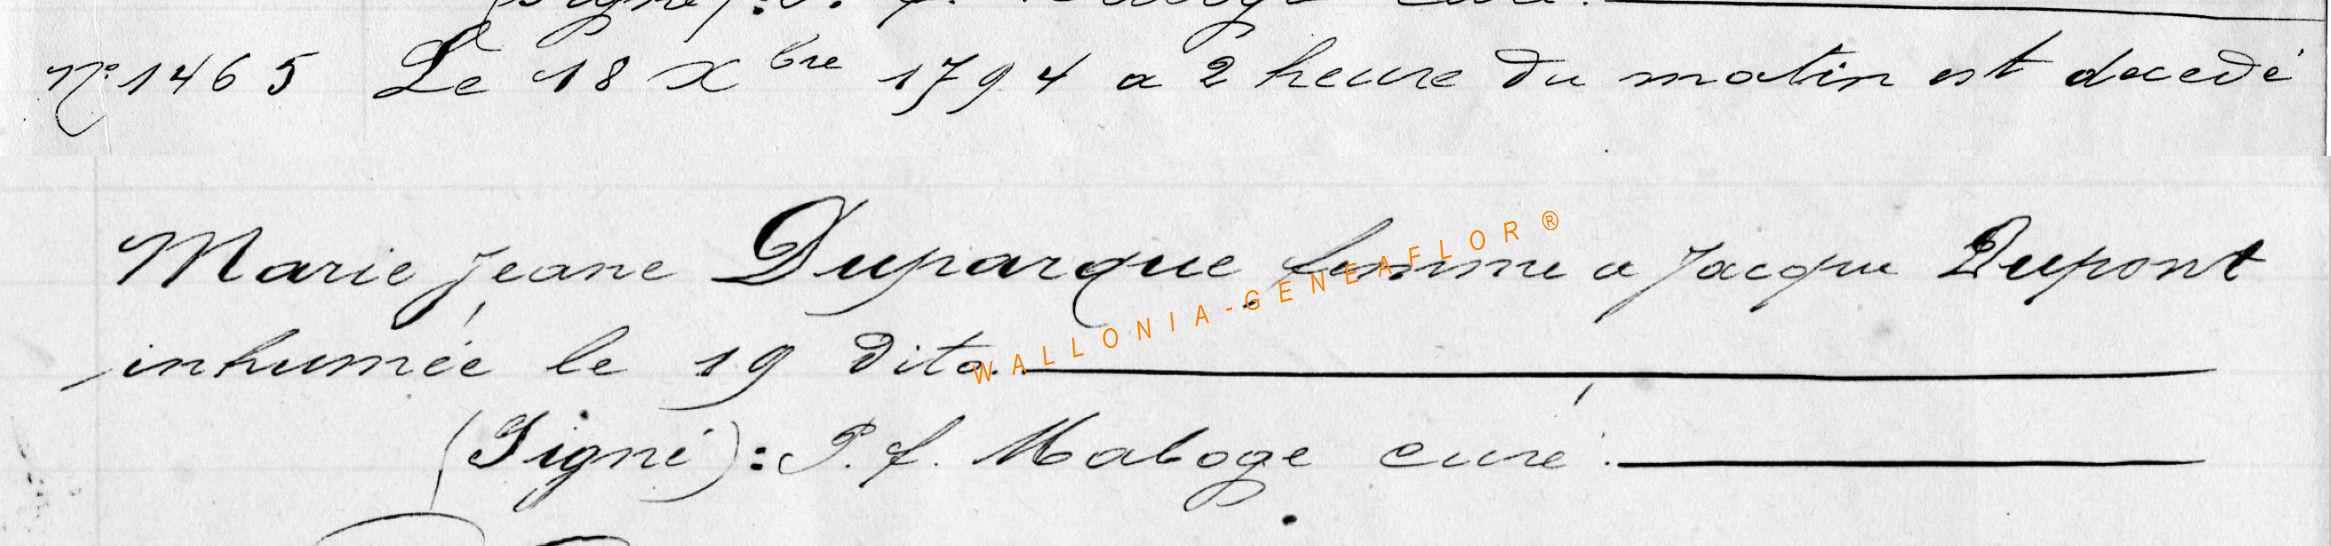 (Signé): P. f. Maboge curé.
N° 1465 Le 18 Xbre 1794 a 2 heure du matin est decedé
Marie Jeane Duparque femme a Jacque Dupont
WALLONIA-GENEAFLOR®
inhumée le 19 dito.
(Signé): P. f. Maboge curé.